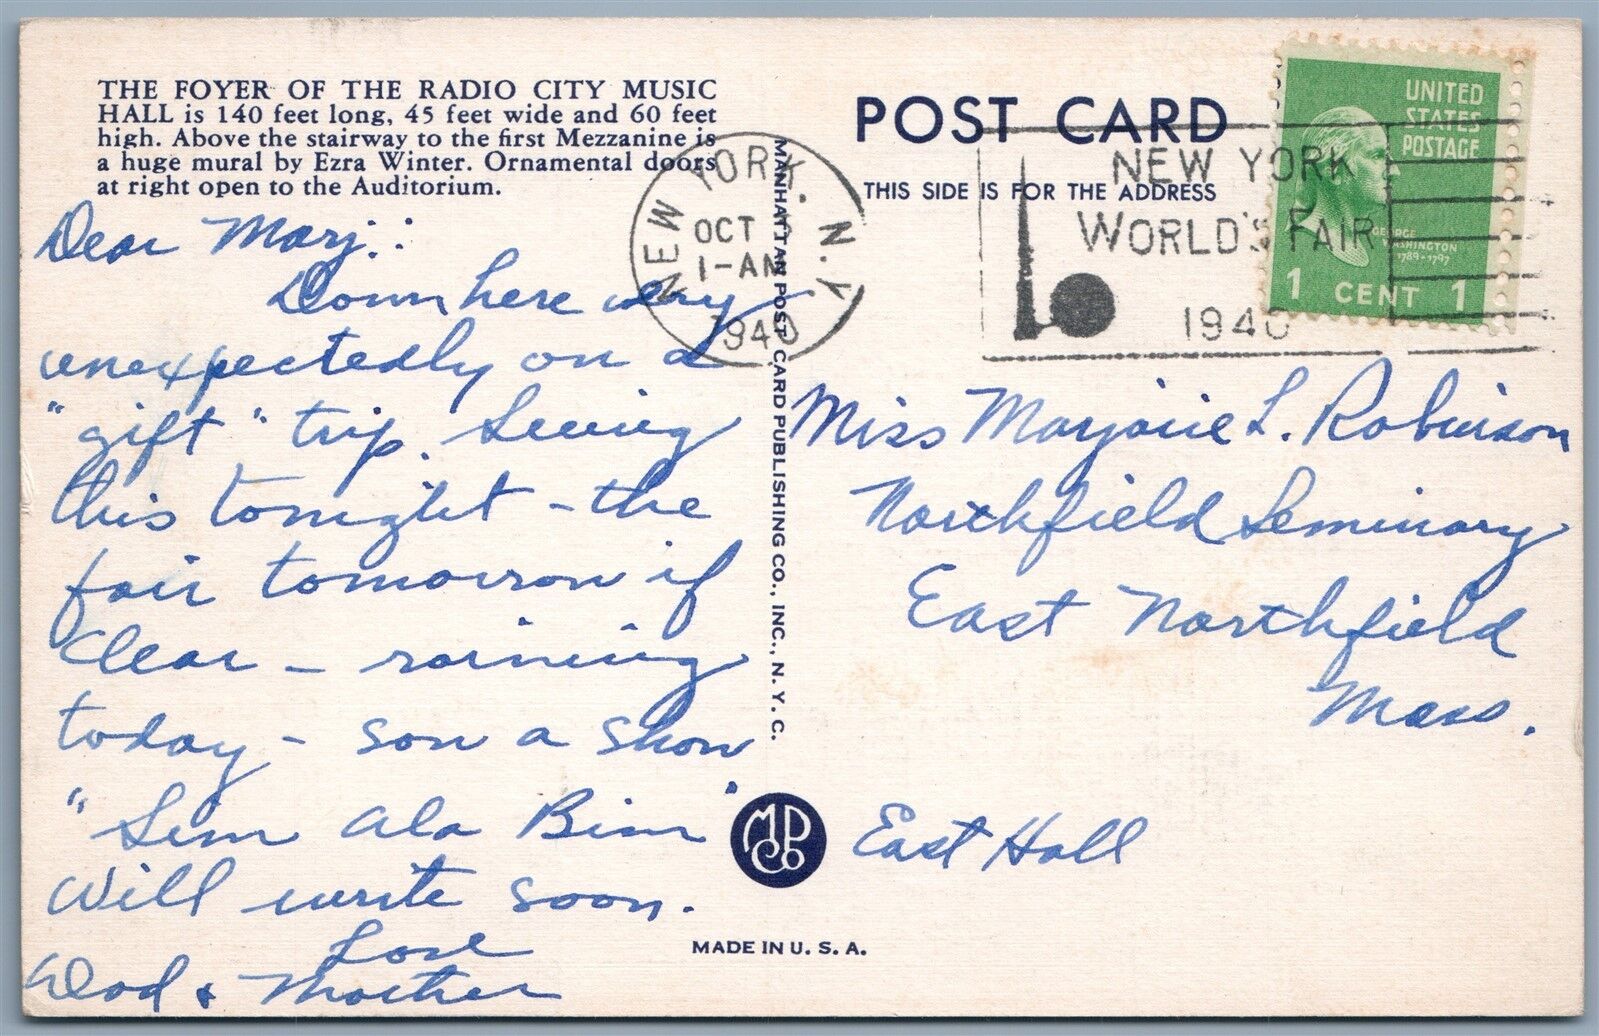 THE FOYER OF THE RADIO CITY MUSIC
HALL is 140 feet long, 45 feet wide and 60 feet
high. Above the stairway to the first Mezzanine is
a huge mural by Ezra Winter. Ornamental doors
at right open to the Auditorium.
Dear Marj.:
Down here very
unexpectedly on a
"gift" trip. Seeing
this tonight – the
fair tomorrow if
clear – raining
today – saw a show
"Sim Ala Bim"
Will write soon.
Love
Dad & Mother
MANHATTAN POST CARD PUBLISHING CO., INC., N. Y. C.
MPCo
MADE IN U. S. A.
POST CARD
THIS SIDE IS FOR THE ADDRESS
NEW YORK, N.Y.
OCT
1-AM
1940
NEW YORK
WORLD'S FAIR
1940
UNITED
STATES
POSTAGE
GEORGE
WASHINGTON
1789-1797
1 CENT 1
Miss Marjorie L. Robinson
Northfield Seminary
East Northfield
Mass.
East Hall